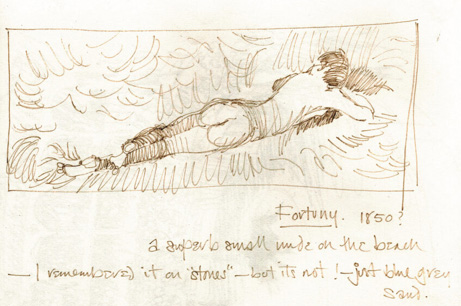 Fortuny. 1850?
a superb small nude on the beach
— I remembered it on "stones" — but its not! — just blue grey
sand.